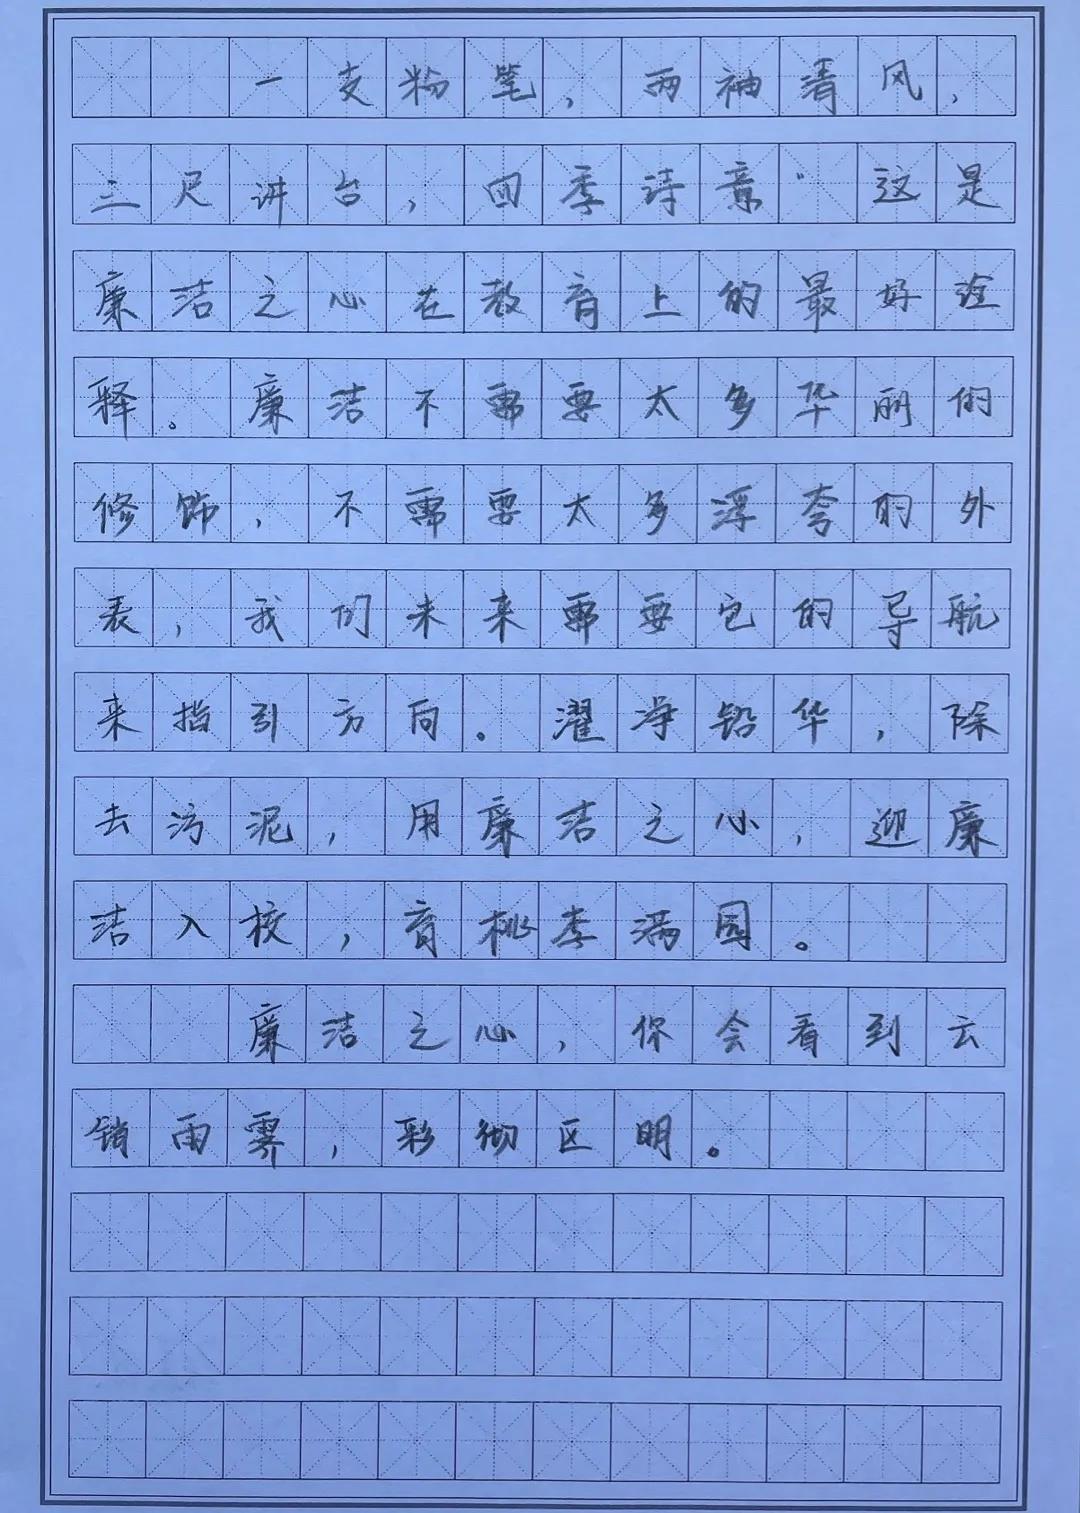 一支粉笔，两袖清风，
三尺讲台，四季诗章”这是
廉洁之心在教育上的最好诠
释。廉洁不需要太多华丽的
修饰，不需要太多浮夸的外
表，我们未来需要它的导航
来指引方向。濯净铅华，除
去污泥，用廉洁之心，迎廉
洁入校，育桃李满园。
廉洁之心，你会看到云
销雨霁，彩彻区明。